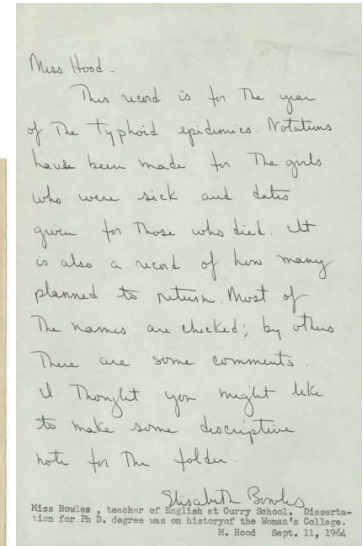 Miss Hood -
This record is for the year
of the typhoid epidemics. Notations
have been made for the girls
who were sick and dates
given for those who died. It
is also a record of how many
planned to return. Most of
the names are checked; by others
there are some comments.
I thought you might like
to make some descriptive
note for the folder.
Elisabeth Bowles
Miss Bowles , teacher of English at Curry School. Disserta-
tion for Ph D. degree was on historyof the Woman's College.
M. Hood Sept. 11, 1964